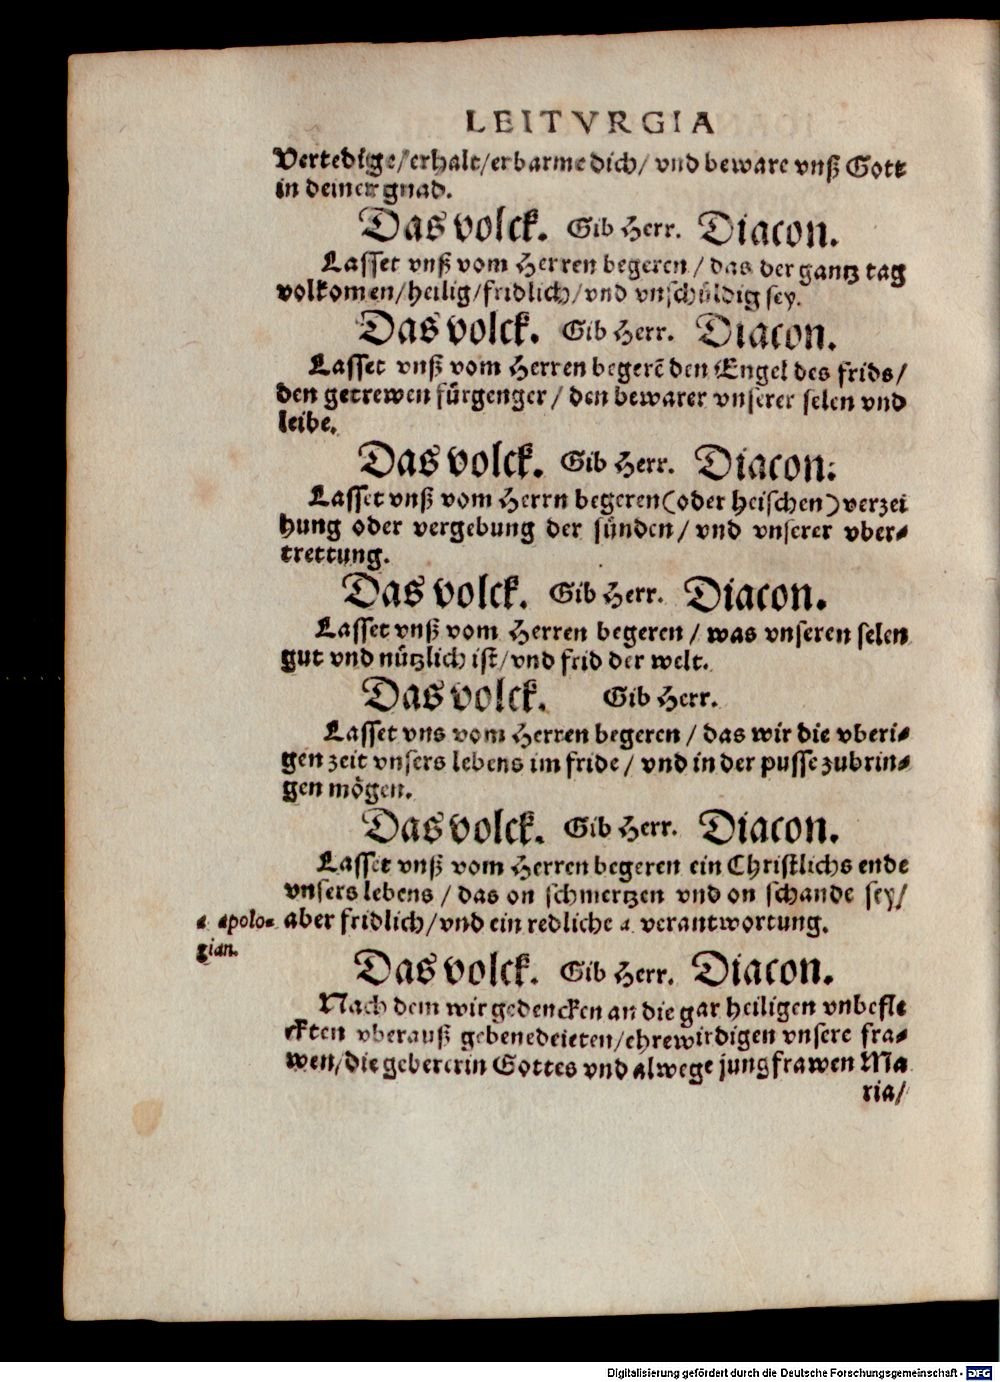 LEITVRGIA
Vertedige/erhalt/erbarme dich/ vnd beware vnß Gott
in deiner gnad.
Das volck. Gib Herr. Diacon.
Lasset vnß vom Herren begeren / das der gantz tag
volkomen/heilig/fridlich/vnd vnschüldig sey.
Das volck. Gib Herr. Diacon.
Lasset vnß vom Herren begerē den Engel des frids/
den getrewen fürgenger / den bewarer vnserer selen vnd
leibe.
Das volck. Gib Herr. Diacon.
Lasset vnß vom Herrn begeren(oder heischen)verzei
hung oder vergebung der sünden/ vnd vnserer vber-
trettung.
Das volck. Gib Herr. Diacon.
Lasset vnß vom Herren begeren / was vnseren selen
gut vnd nützlich ist/vnd frid der welt.
Das volck. Gib Herr.
Lasset vns vom Herren begeren / das wir die vberi-
gen zeit vnsers lebens im fride/ vnd in der pusse zubrin-
gen mögen.
Das volck. Gib Herr. Diacon.
Lasset vnß vom Herren begeren ein Christlichs ende
vnsers lebens / das on schmertzen vnd on schande sey/
aber fridlich/vnd ein redliche a verantwortung.
a apolo-
gian.
Das volck. Gib Herr. Diacon.
Nach dem wir gedencken an die gar heiligen vnbefle
ckten vberauß gebenedeieten/ehrewirdigen vnsere fra-
wen/die gebererin Gottes vnd alwege jungfrawen Ma
ria/
Digitalisierung gefördert durch die Deutsche Forschungsgemeinschaft - DFG